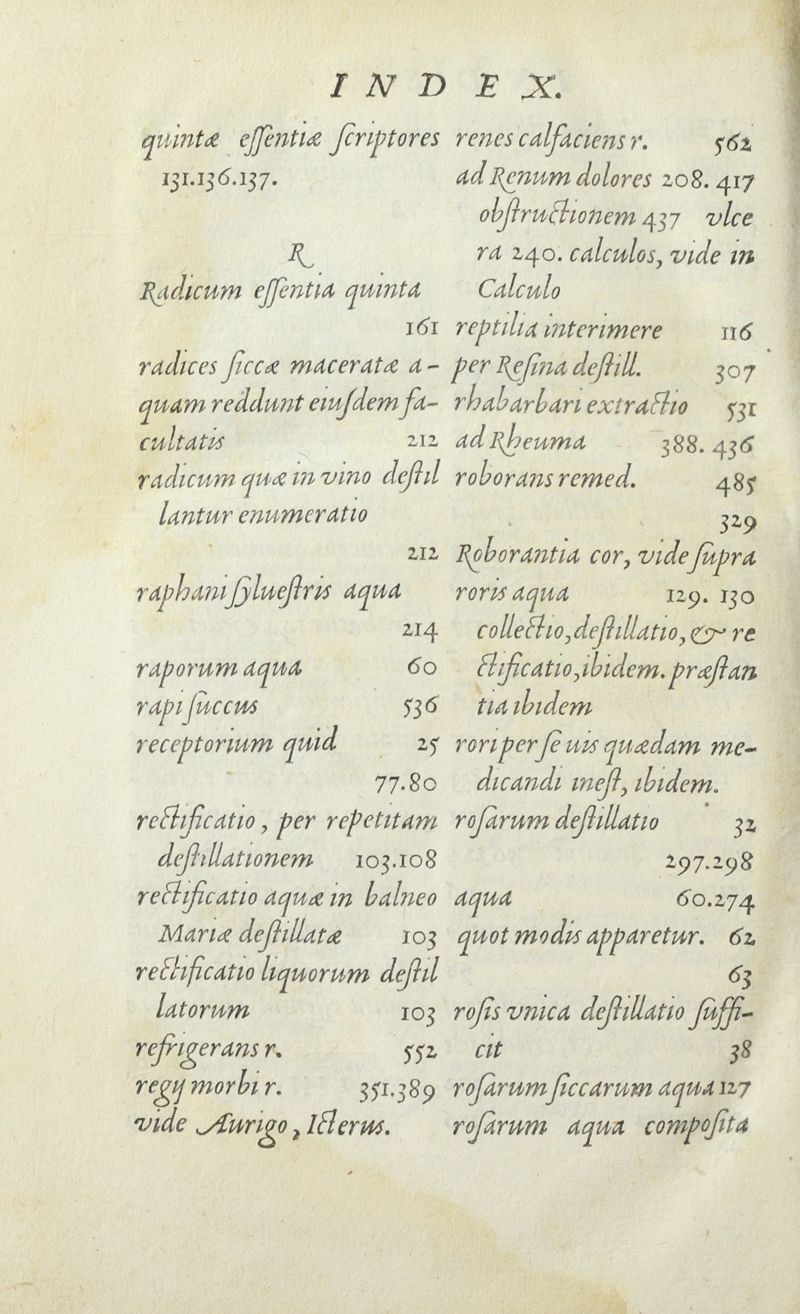 INDEX.
quintæ eſſentiæ ſcriptores
131.136.137.
R
Radicum eſſentia quinta
161
radices ſiccæ maceratæ a-
quam reddunt eiuſdem fa-
cultatis 212
radicum quæ in vino deſtil
lantur enumeratio
212
raphani ſylueſtris aqua
214
raporum aqua 60
rapi ſuccus 536
receptorium quid 25
77.80
rectificatio, per repetitam
deſtillationem 103.108
rectificatio aquæ in balneo
Mariæ deſtillatæ 103
rectificatio liquorum deſtil
latorum 103
refrigerans r. 552
regij morbi r. 351.389
vide Aurigo, Icterus.
renes calfaciens r. 562
ad Renum dolores 208.417
obſtructionem 437 vlce
ra 240. calculos, vide in
Calculo
reptilia interimere 116
per Reſina deſtill. 307
rhabarbari extractio 531
ad Rheuma 388.436
roborans remed. 485
329
Roborantia cor, vide ſupra
roris aqua 129. 130
collectio, deſtillatio, & re
ctificatio, ibidem. præſtan
tia ibidem
rori per ſe uis quædam me-
dicandi ineſt, ibidem.
roſarum deſtillatio 32
297.298
aqua 60.274
quot modis apparetur. 62
63
roſis vnica deſtillatio ſuffi-
cit 38
roſarum ſiccarum aqua 127
roſarum aqua compoſita